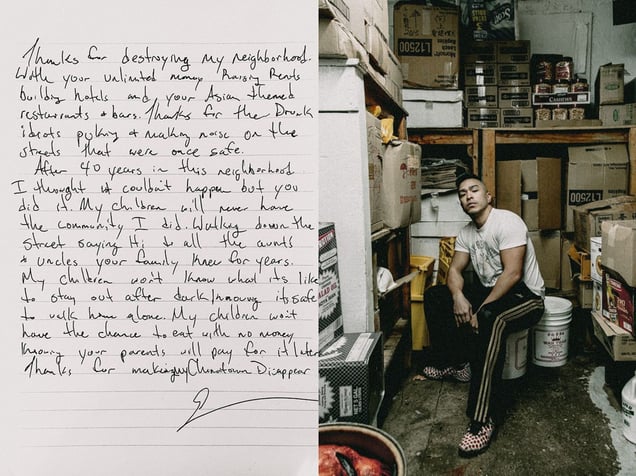 Thanks for destroying my neighborhood.
With your unlimited money Raising Rents
building hotels and your Asian themed
restaurants & bars. Thanks for the Drunk
idiots puking & making noise on the
streets that were once safe.
After 40 years in this neighborhood
I thought it couldn't happen but you
did it. My children will never have
the community I did. Walking down the
street saying Hi to all the aunts
& uncles your family knew for years.
My children won't know what its like
to stay out after dark knowing its safe
to walk home alone. My children won't
have the chance to eat with no money
knowing your parents will pay for it later
Thanks for making my Chinatown Disappear
000
L12505